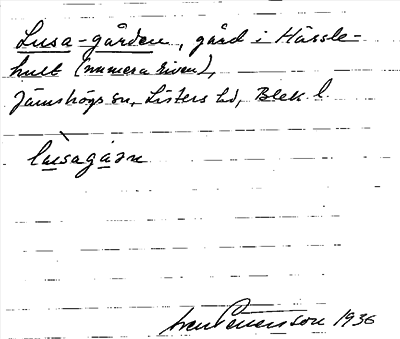 Lusa-gården, gård i Hässle-
hult (numera riven),
Jämshögs sn, Listers hd, Blek. l.
lùsagårn
Sven Petersson 1936